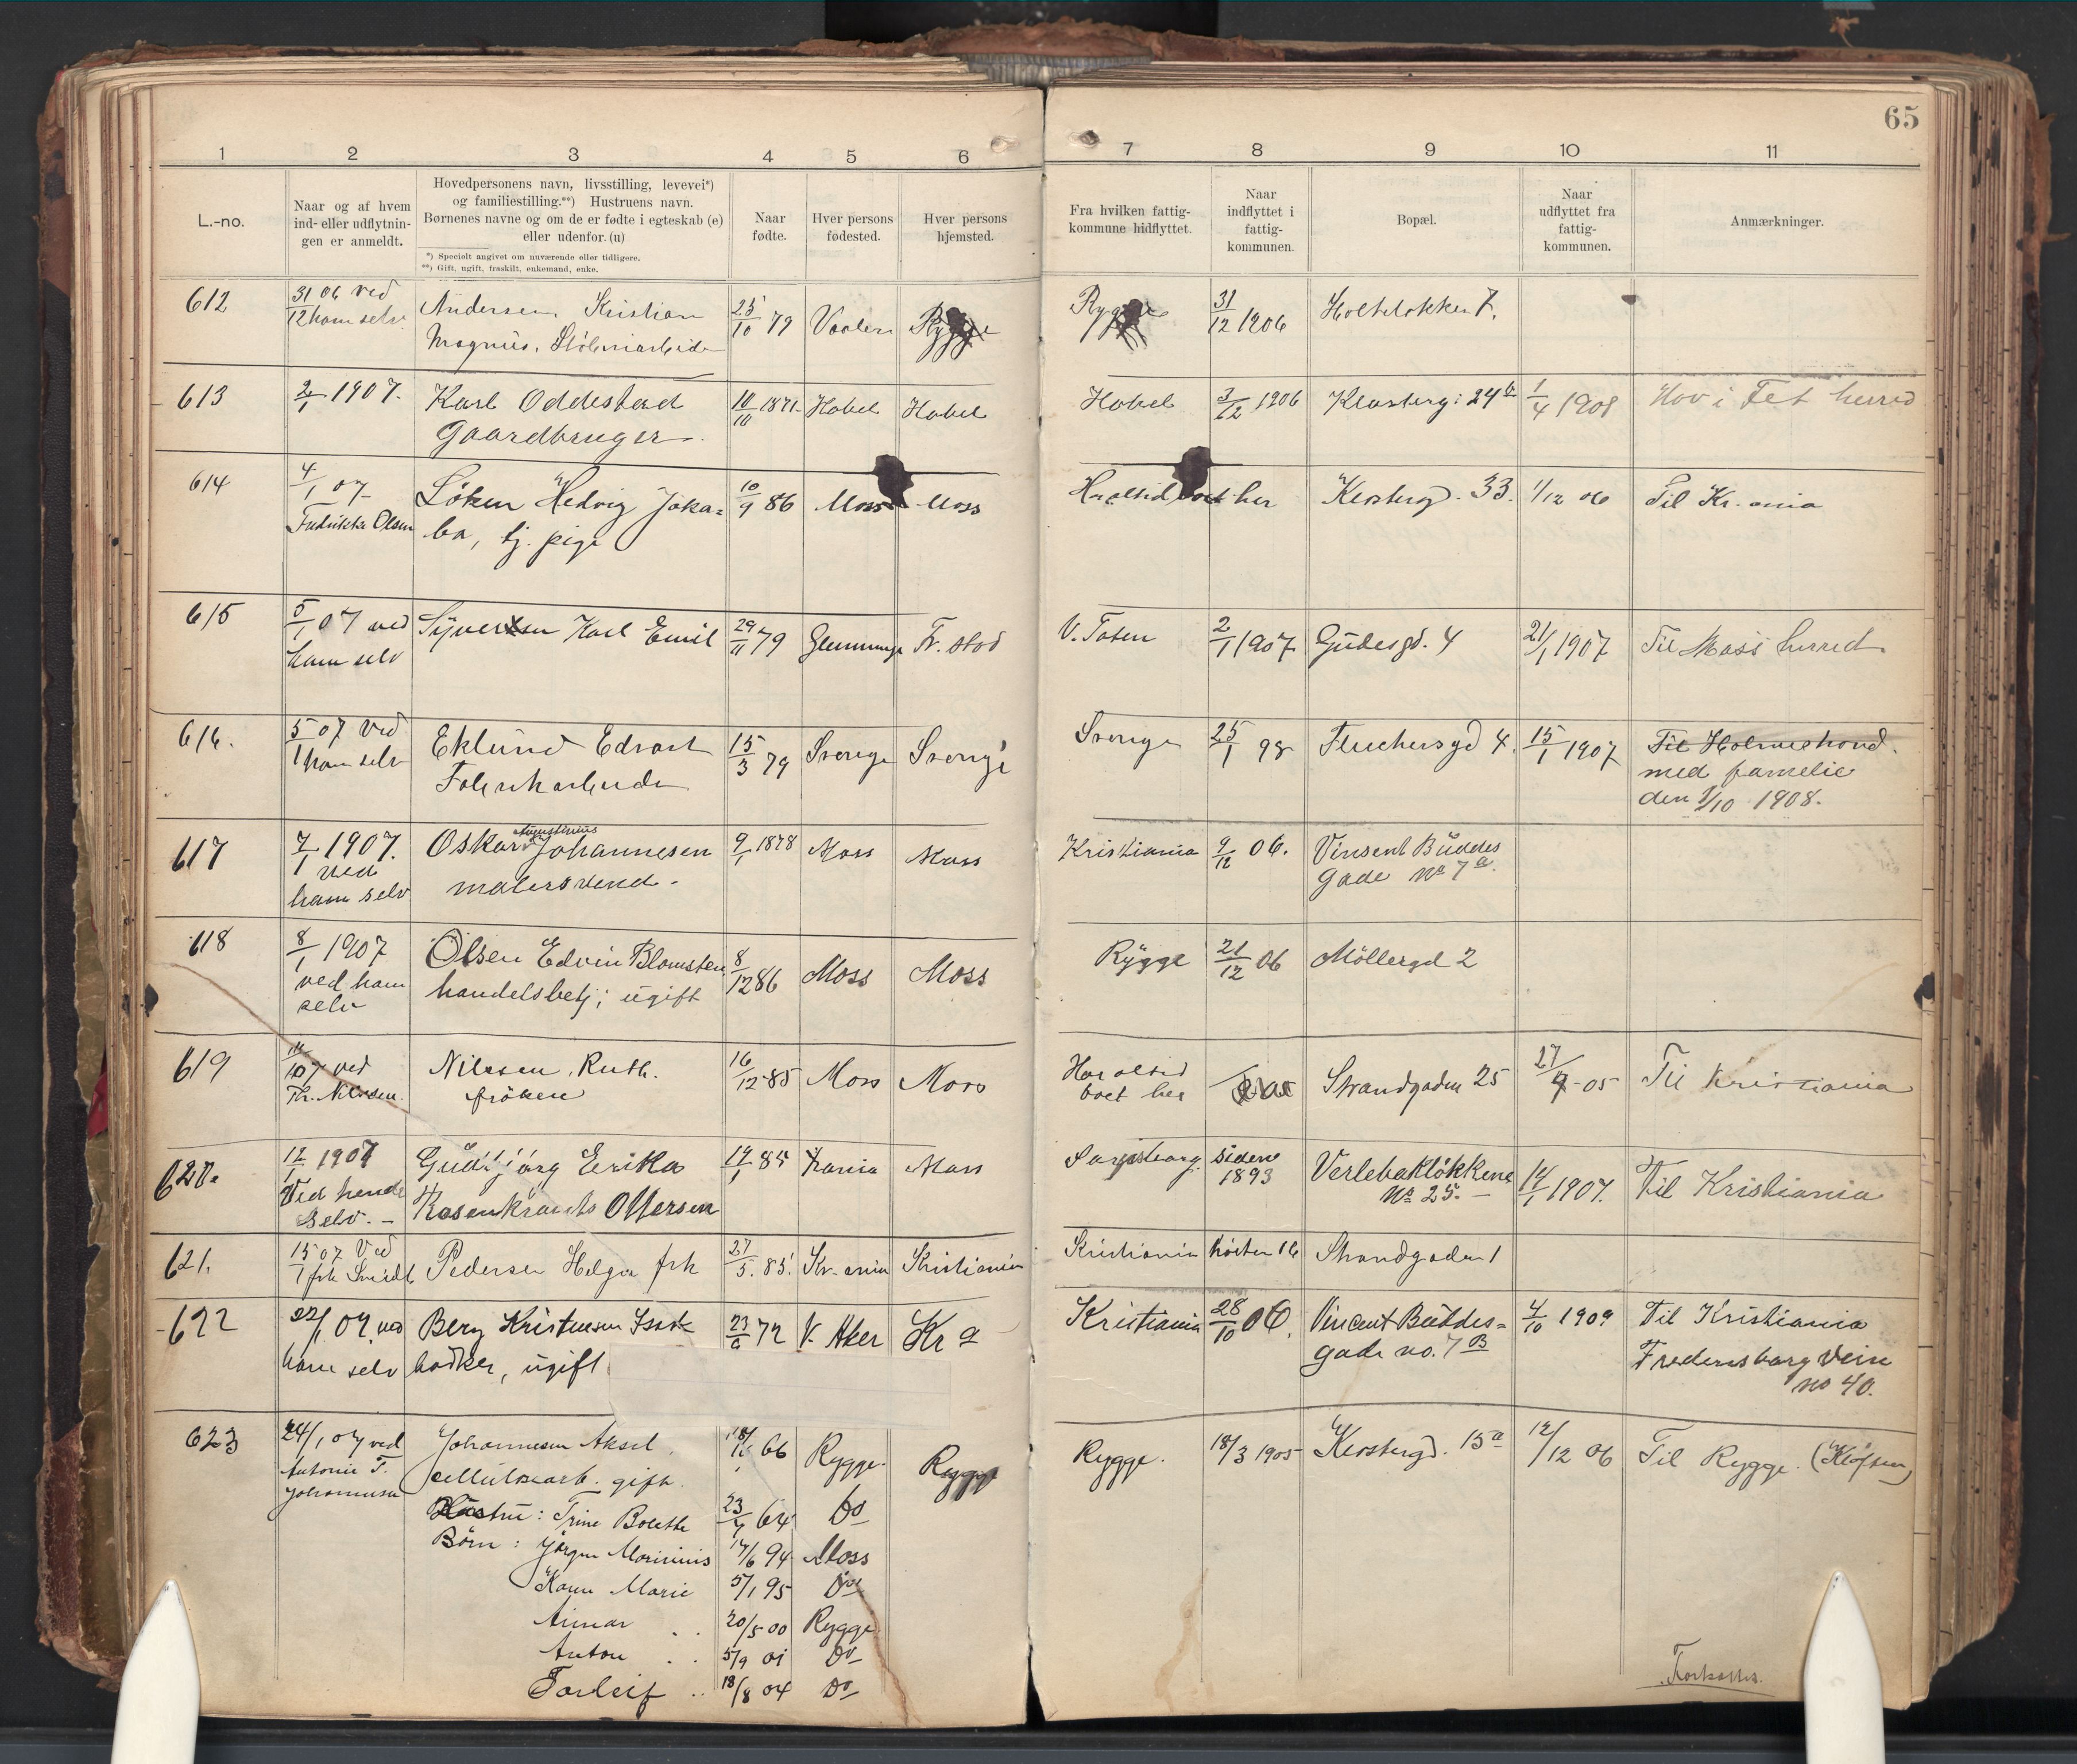 65
1 2 3 4 5 6 7 8 9 10 11
L.-no.
Naar og af hvem
ind- eller udflytnin-
gen er anmeldt.
Hovedpersonens navn, livsstilling, levevei*)
og familiestilling.**) Hustruens navn.
Børnenes navne og om de er fødte i egteskab (e)
eller udenfor. (u)
*) Specielt angivet om nuværende eller tidligere.
**) Gift, ugift, fraskilt, enkemand, enke.
Naar
fødte.
Hver persons
fødested.
Hver persons
hjemsted.
Fra hvilken fattig-
kommune hidflyttet.
Naar
indflyttet i
fattig-
kommunen.
Bopæl.
Naar
udflyttet fra
fattig-
kommunen.
Anmærkninger.
612 31/12 06 ved Andersen, Kristian 25/10 79 Vaaler Rygge Rygge 31/12 1906 Holteløkken 7.
ham selv Magnus.
613 2/1 1907. Karl Oddestad 10/10 1871 Hobel Hobel Hobel 3/12 1906 Klosterg: 24b 1/4 1908 Hov i Fet herred
Gaardbruger.
614 4/1 07 Løken Hedvig Joka= 10/9 86 Moss Moss Har altid boet her Klosterg. 33. 1/12 06 Til Kr.ania
Fredrikke Olsen ba, tj. pige
615 5/1 07 ved Syvertsen Karl Emil 29/11 79 Glemminge Fr. stad V. Toten 2/1 1907 Gudesgd. 4 21/1 1907 Til Moss herred.
ham selv
616. 5/1 07 ved Eklund Edvart 15/3 79 Sverige Sverige Sverige 25/1 98 Fluchersgd 4. 15/1 1907 Til Holmestrand.
ham selv med famelie
den 1/10 1908.
617 7/1 1907. Oskar Augustinius Johannesen 9/1 1878 Moss Moss Kristiania 9/12 06. Vinsent Buddes
ved malersvend. Gade No 7a.
ham selv
618 8/1 1907 Olsen Edvin Blomsten 8/12 86 Moss Moss Rygge 21/12 06 Møllergd 2
ved ham handelsbetj; ugift
selv
619 07 ved Nilssen, Ruth. 16/12 85 Moss Moss Har altid Strandgaden 25 27/9 05 Til Kristiania
Th. Nilssen. frøken boet her
620. 12/1 1907 Gudbjørg Erika 85 Krania Moss Sarpsborg siden Verlebakløkkene 14/1 1907. Til Kristiania
Ved hende Rosenkrants Ottersen 1893 No 25.
selv.
621. 15/1 07 Ved Pedersen Helga frk 27/5. 85. Kr.ania Kristiania Kristiania høsten Strandgaden 1
frk
622 22/1 07. ved Berg Kristensen Isak 23/9 72 V. Aker Kr a Kristiania 28/10 06. Vincent Buddes= 4/10 1909 Til Kristiania
ham selv bødker, ugift gade no. 7 B Fredensborg Veien
no 40.
623 24/1 07 ved Johannesen Aksel. 66 Rygge. Rygge Rygge. 18/3 1905 Klostergd. 15a 12/12 06 Til Rygge. (Kløfsen)
Antonie T. cellulosearb. gift.
Johannesen
Hustru: Trine Bolette 23/7 64 Do
Børn: Jørgen Marinius 14/6 94 Moss
Karen Marie 5/1 95 Do
Aimar 20/5 00 Rygge
Anton 5/9 01 Do
Torleif 18/8 04 Do